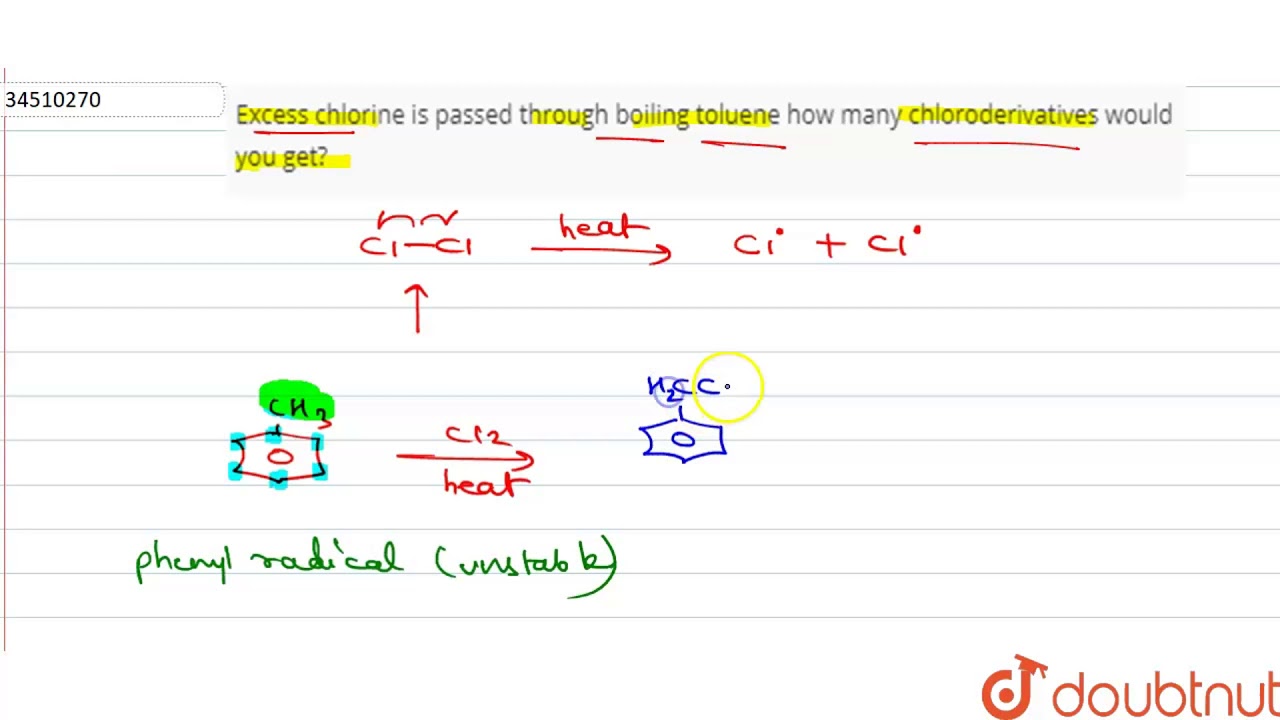 34510270
Excess chlorine is passed through boiling toluene how many chloroderivatives would
you get?
Cl—Cl heat Cl• + Cl•
CH3 Cl2 heat H2CC
phenyl radical (unstable)
doubtnut